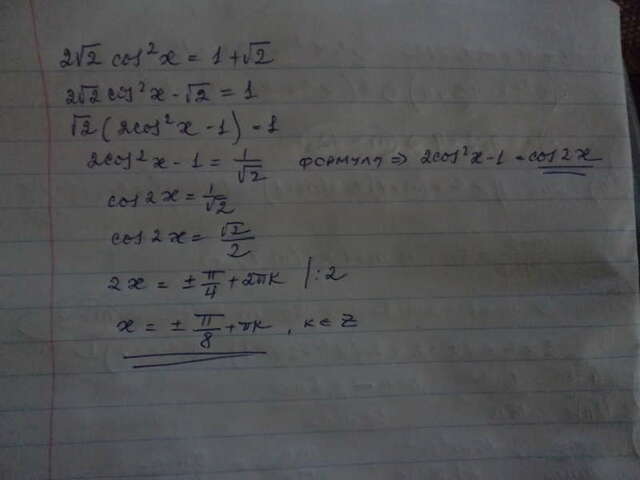 2√2 cos²x = 1+√2
2√2 cos²x - √2 = 1
√2 (2cos²x - 1) = 1
2cos²x - 1 = 1/√2 формула => 2cos²x-1 = cos2x
cos2x = 1/√2
cos2x = √2/2
2x = ± π/4 + 2πk /:2
x = ± π/8 + πk , k ∈ Z